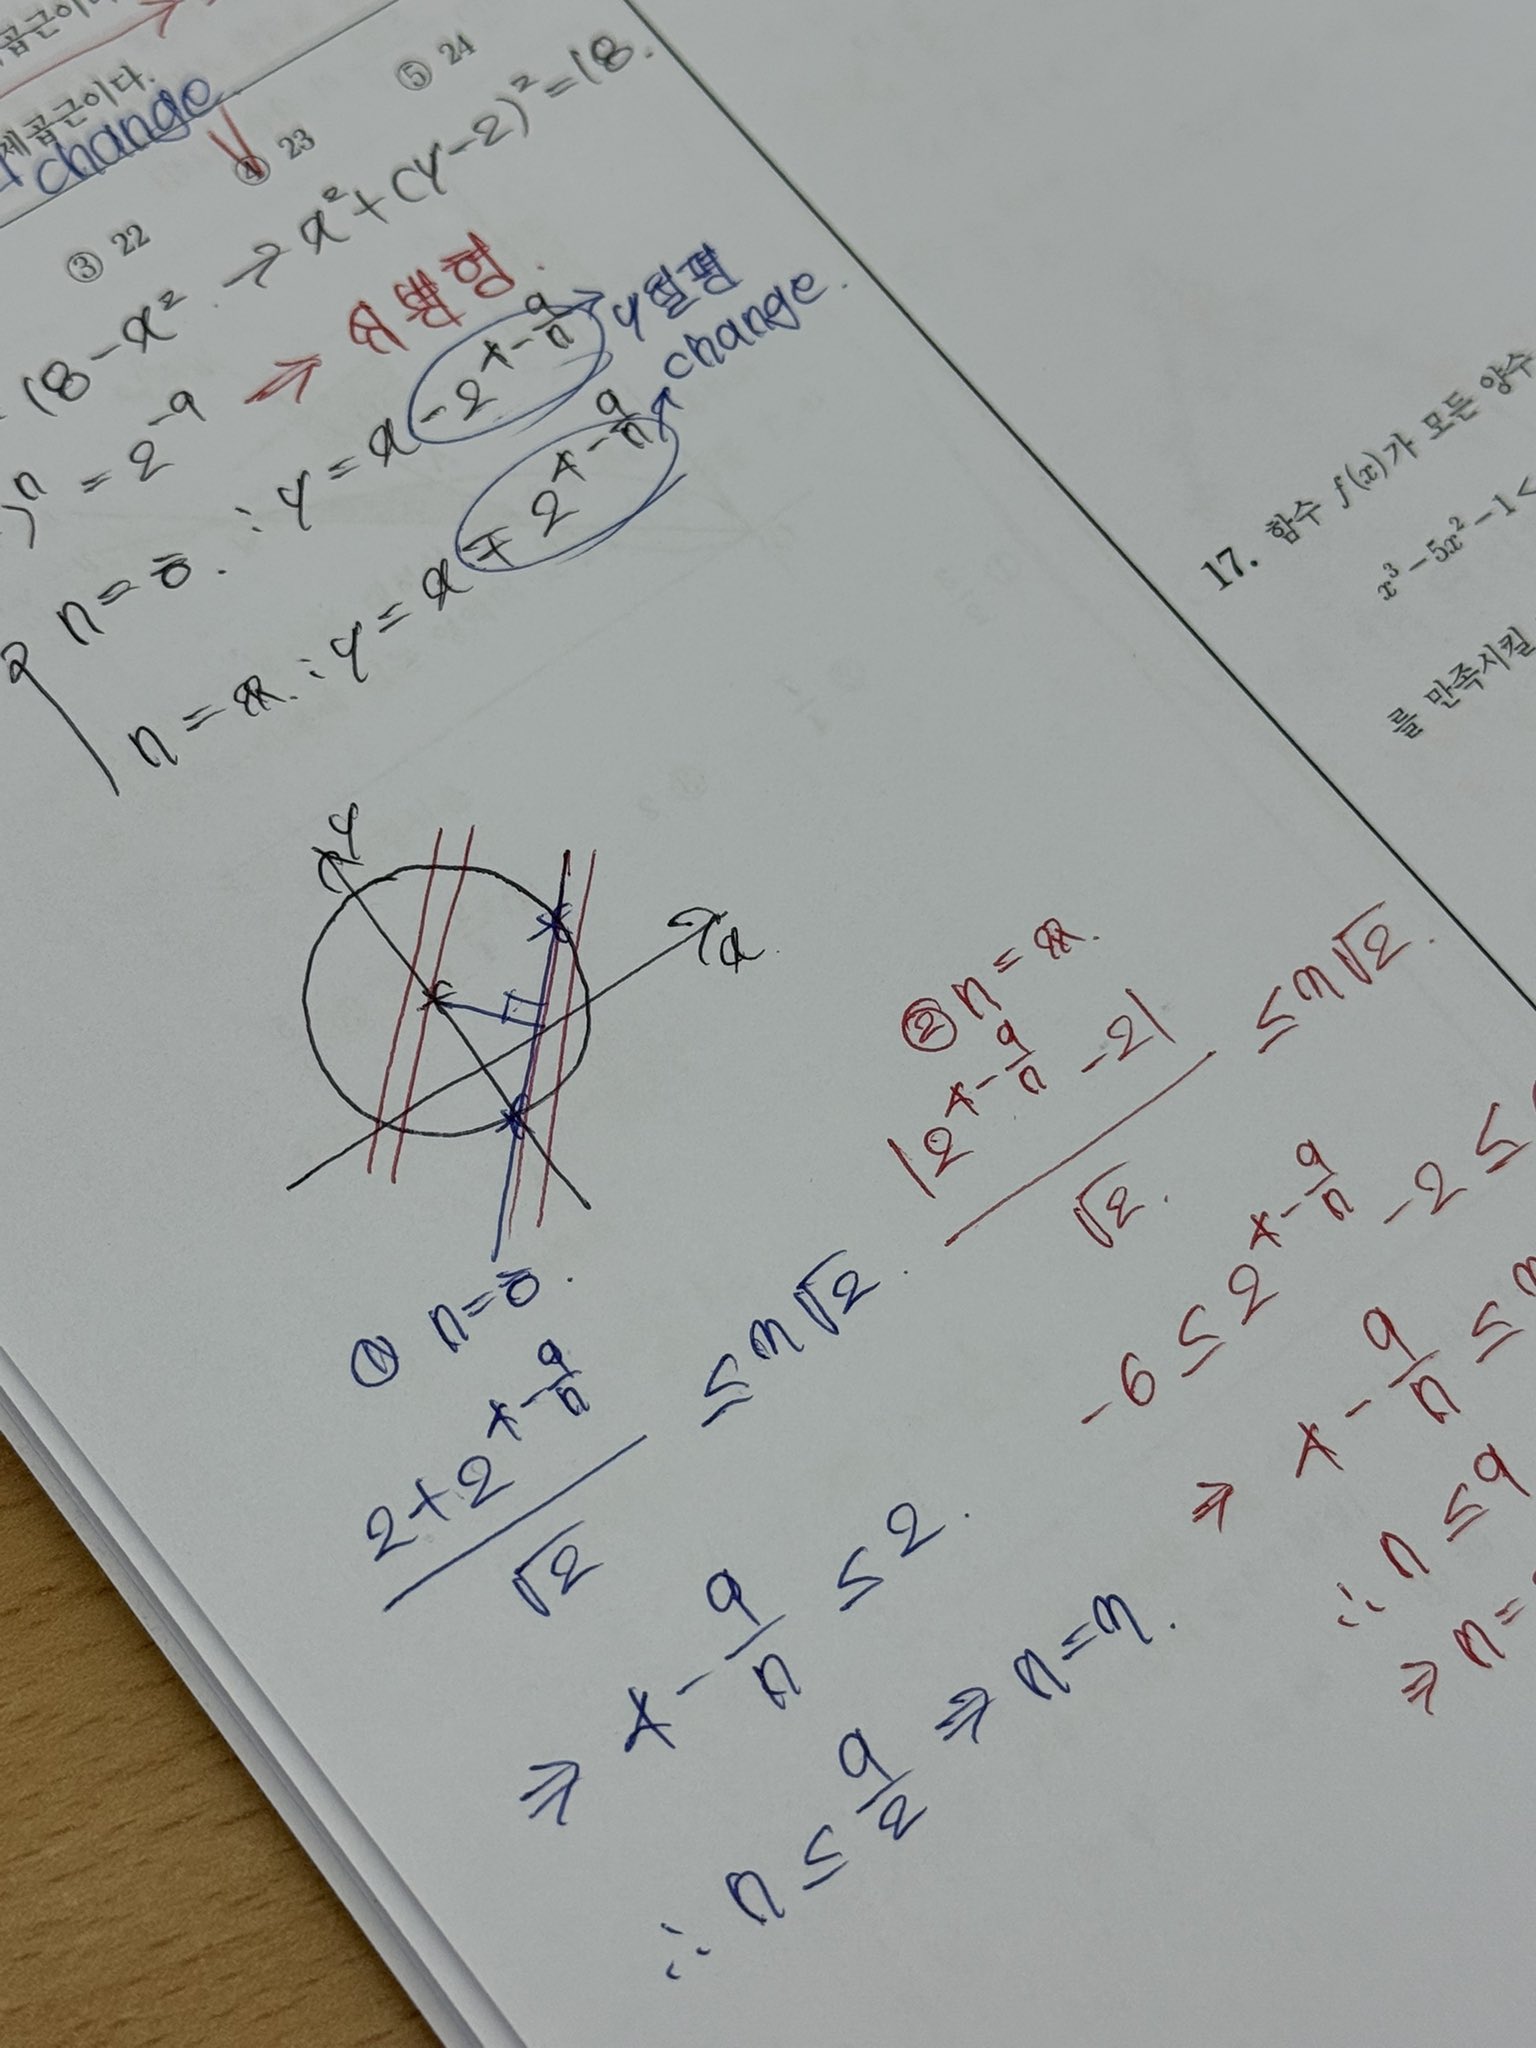 제곱근이다.
change
③ 22
④ 23
⑤ 24
18-x² → x²+(y-2)²=18.
)ⁿ = 2⁻⁹ ⇒
n=홀. : y=x-2^(4-9/n) → y절편 change.
n=짝. : y=x∓2^(4-9/n)
y
x
① n=홀.
(2+2^(4-9/n))/√2 ≤ 3√2.
⇒ 4-9/n ≤ 2.
∴ n ≤ 9/2 ⇒ n=3.
② n=짝.
|2^(4-9/n)-2|/√2. ≤ 3√2.
-6 ≤ 2^(4-9/n) -2 ≤
⇒ 4-9/n ≤ 3
∴ n ≤ 9
⇒ n=
17. 함수 f(x)가 모든 양수
x³-5x²-1<
를 만족시킬